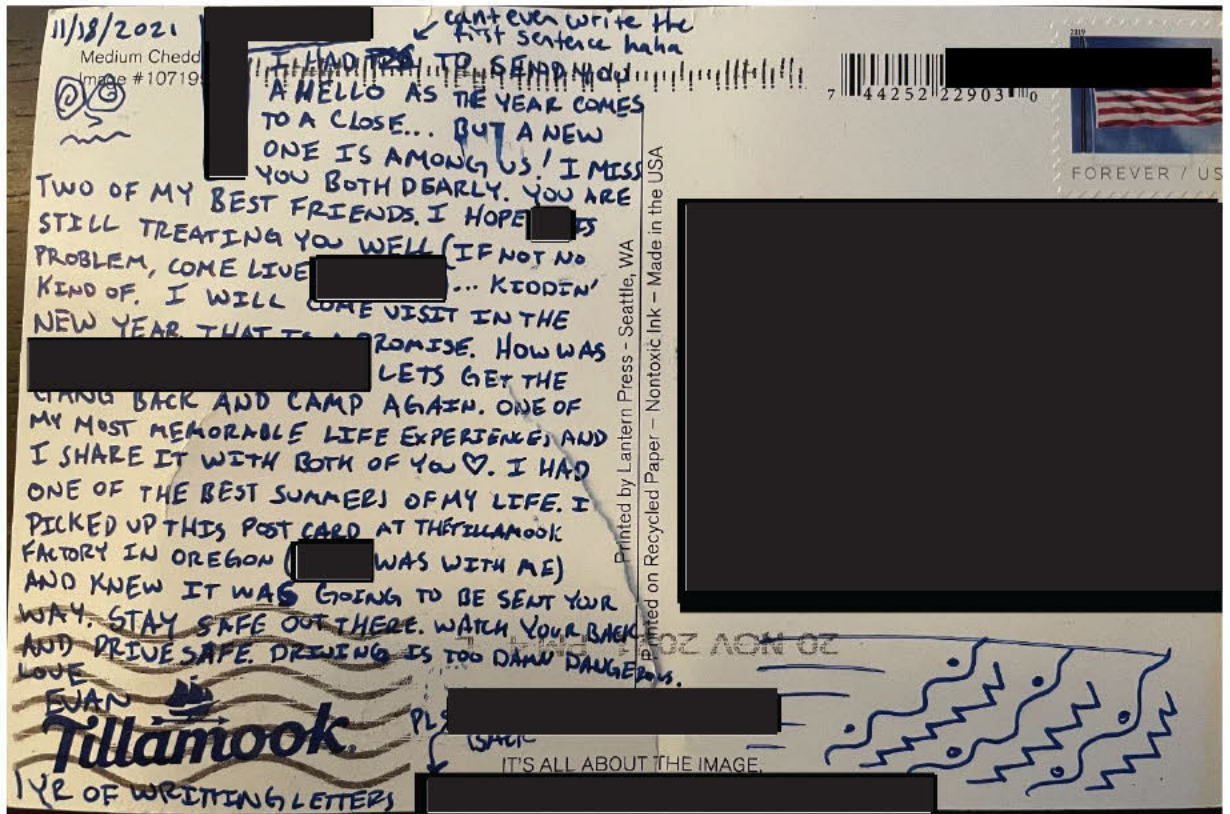 11/18/2021
cant even write the
first sentence haha
Medium Chedd
Image #10719
I HAD TO SEND YOU
A HELLO AS THE YEAR COMES
TO A CLOSE... BUT A NEW
ONE IS AMONG US! I MISS
YOU BOTH DEARLY. YOU ARE
TWO OF MY BEST FRIENDS. I HOPE IS
STILL TREATING YOU WELL (IF NOT NO
PROBLEM, COME LIVE ... KIDDIN'
KIND OF. I WILL COME VISIT IN THE
NEW YEAR THAT IS A PROMISE. HOW WAS
LETS GET THE
GANG BACK AND CAMP AGAIN. ONE OF
MY MOST MEMORABLE LIFE EXPERIENCES AND
I SHARE IT WITH BOTH OF YOU ♡. I HAD
ONE OF THE BEST SUMMERS OF MY LIFE. I
PICKED UP THIS POST CARD AT THE TILLAMOOK
FACTORY IN OREGON ( WAS WITH ME)
AND KNEW IT WAS GOING TO BE SENT YOUR
WAY. STAY SAFE OUT THERE. WATCH YOUR BACK
AND DRIVE SAFE. DRIVING IS TOO DAMN DANGEROUS.
LOVE
EVAN
Tillamook
1 YR OF WRITTING LETTERS
PLS
BACK
IT'S ALL ABOUT THE IMAGE.
Printed by Lantern Press – Seattle, WA
Printed on Recycled Paper – Nontoxic Ink – Made in the USA
7 44252 22903 0
2019
FOREVER / US
20 NOV 20 PM